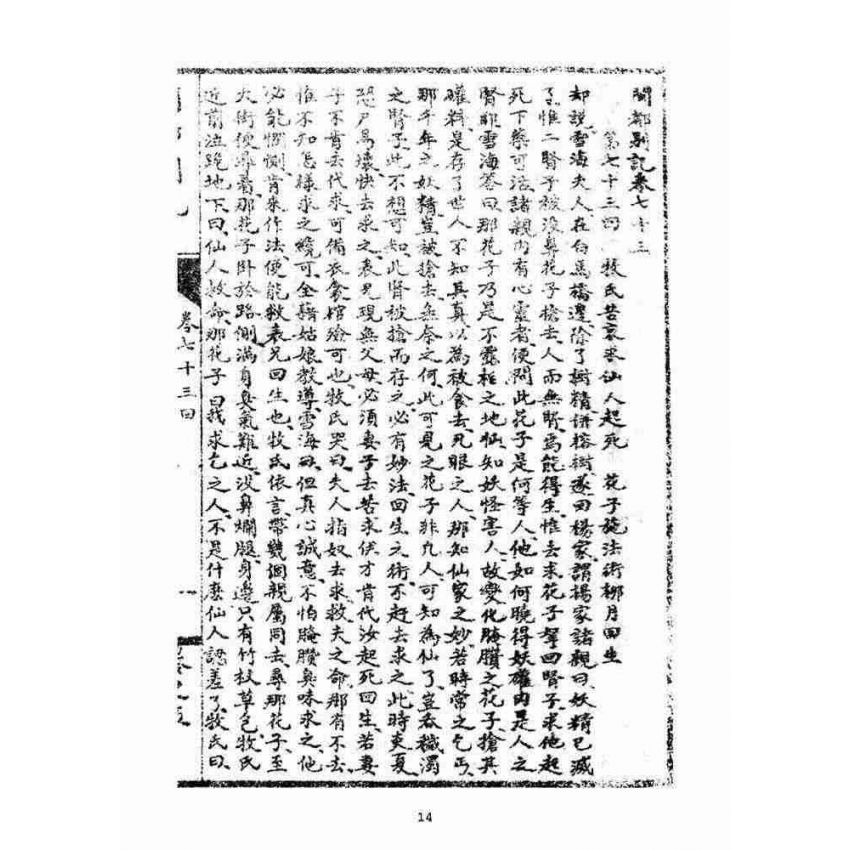 閩都別記卷七十三
第七十三回 牧氏苦哀求仙人起死 花子施法術柳月回生
却說雪海夫人在白馬橋邊除了樹精併榕樹遂回楊家謂楊家諸親曰妖精已滅
了惟二腎子被沒鼻花子搶去人而無腎焉能得生惟去求花子拏回腎子求他起
死下藥可活諸親內有心靈者便問此花子是何等人他如何曉得妖罐內是人之
腎耶雪海答曰那花子乃是不露相之地仙知妖怪害人故變化腌臢之花子搶其
罐料是存了世人不知其真以為被食去死眼之人那知仙家之妙若時常之乞丐
那千年之妖精豈被搶去無奈之何此可見之花子非凡人可知為仙了豈吞穢濁
之腎子此不想可知此腎被搶而存之必有妙法回生之術不赶去求之此時炎夏
恐尸易壞快去求之表兄現無父母必須妻子去苦求伏才肯代汝起死回生若妻
子不肯去代求可備衣衾棺殮可也牧氏哭曰夫人指奴去求救夫之命那有不去
惟不知怎樣求之纔可全藉姑娘教導雪海曰但真心誠意不怕腌臢臭味求之他
必能憫惻肯來作法便能救表兄回生也牧氏依言帶幾個親屬同去尋那花子至
大街便尋着那花子卧於路側滿身臭氣難近沒鼻爛腿身邊只有竹杖草包牧氏
近前泣跪地下曰仙人救命那花子曰我求乞之人不是什麽仙人認差了牧氏曰
卷七十三回
一
14